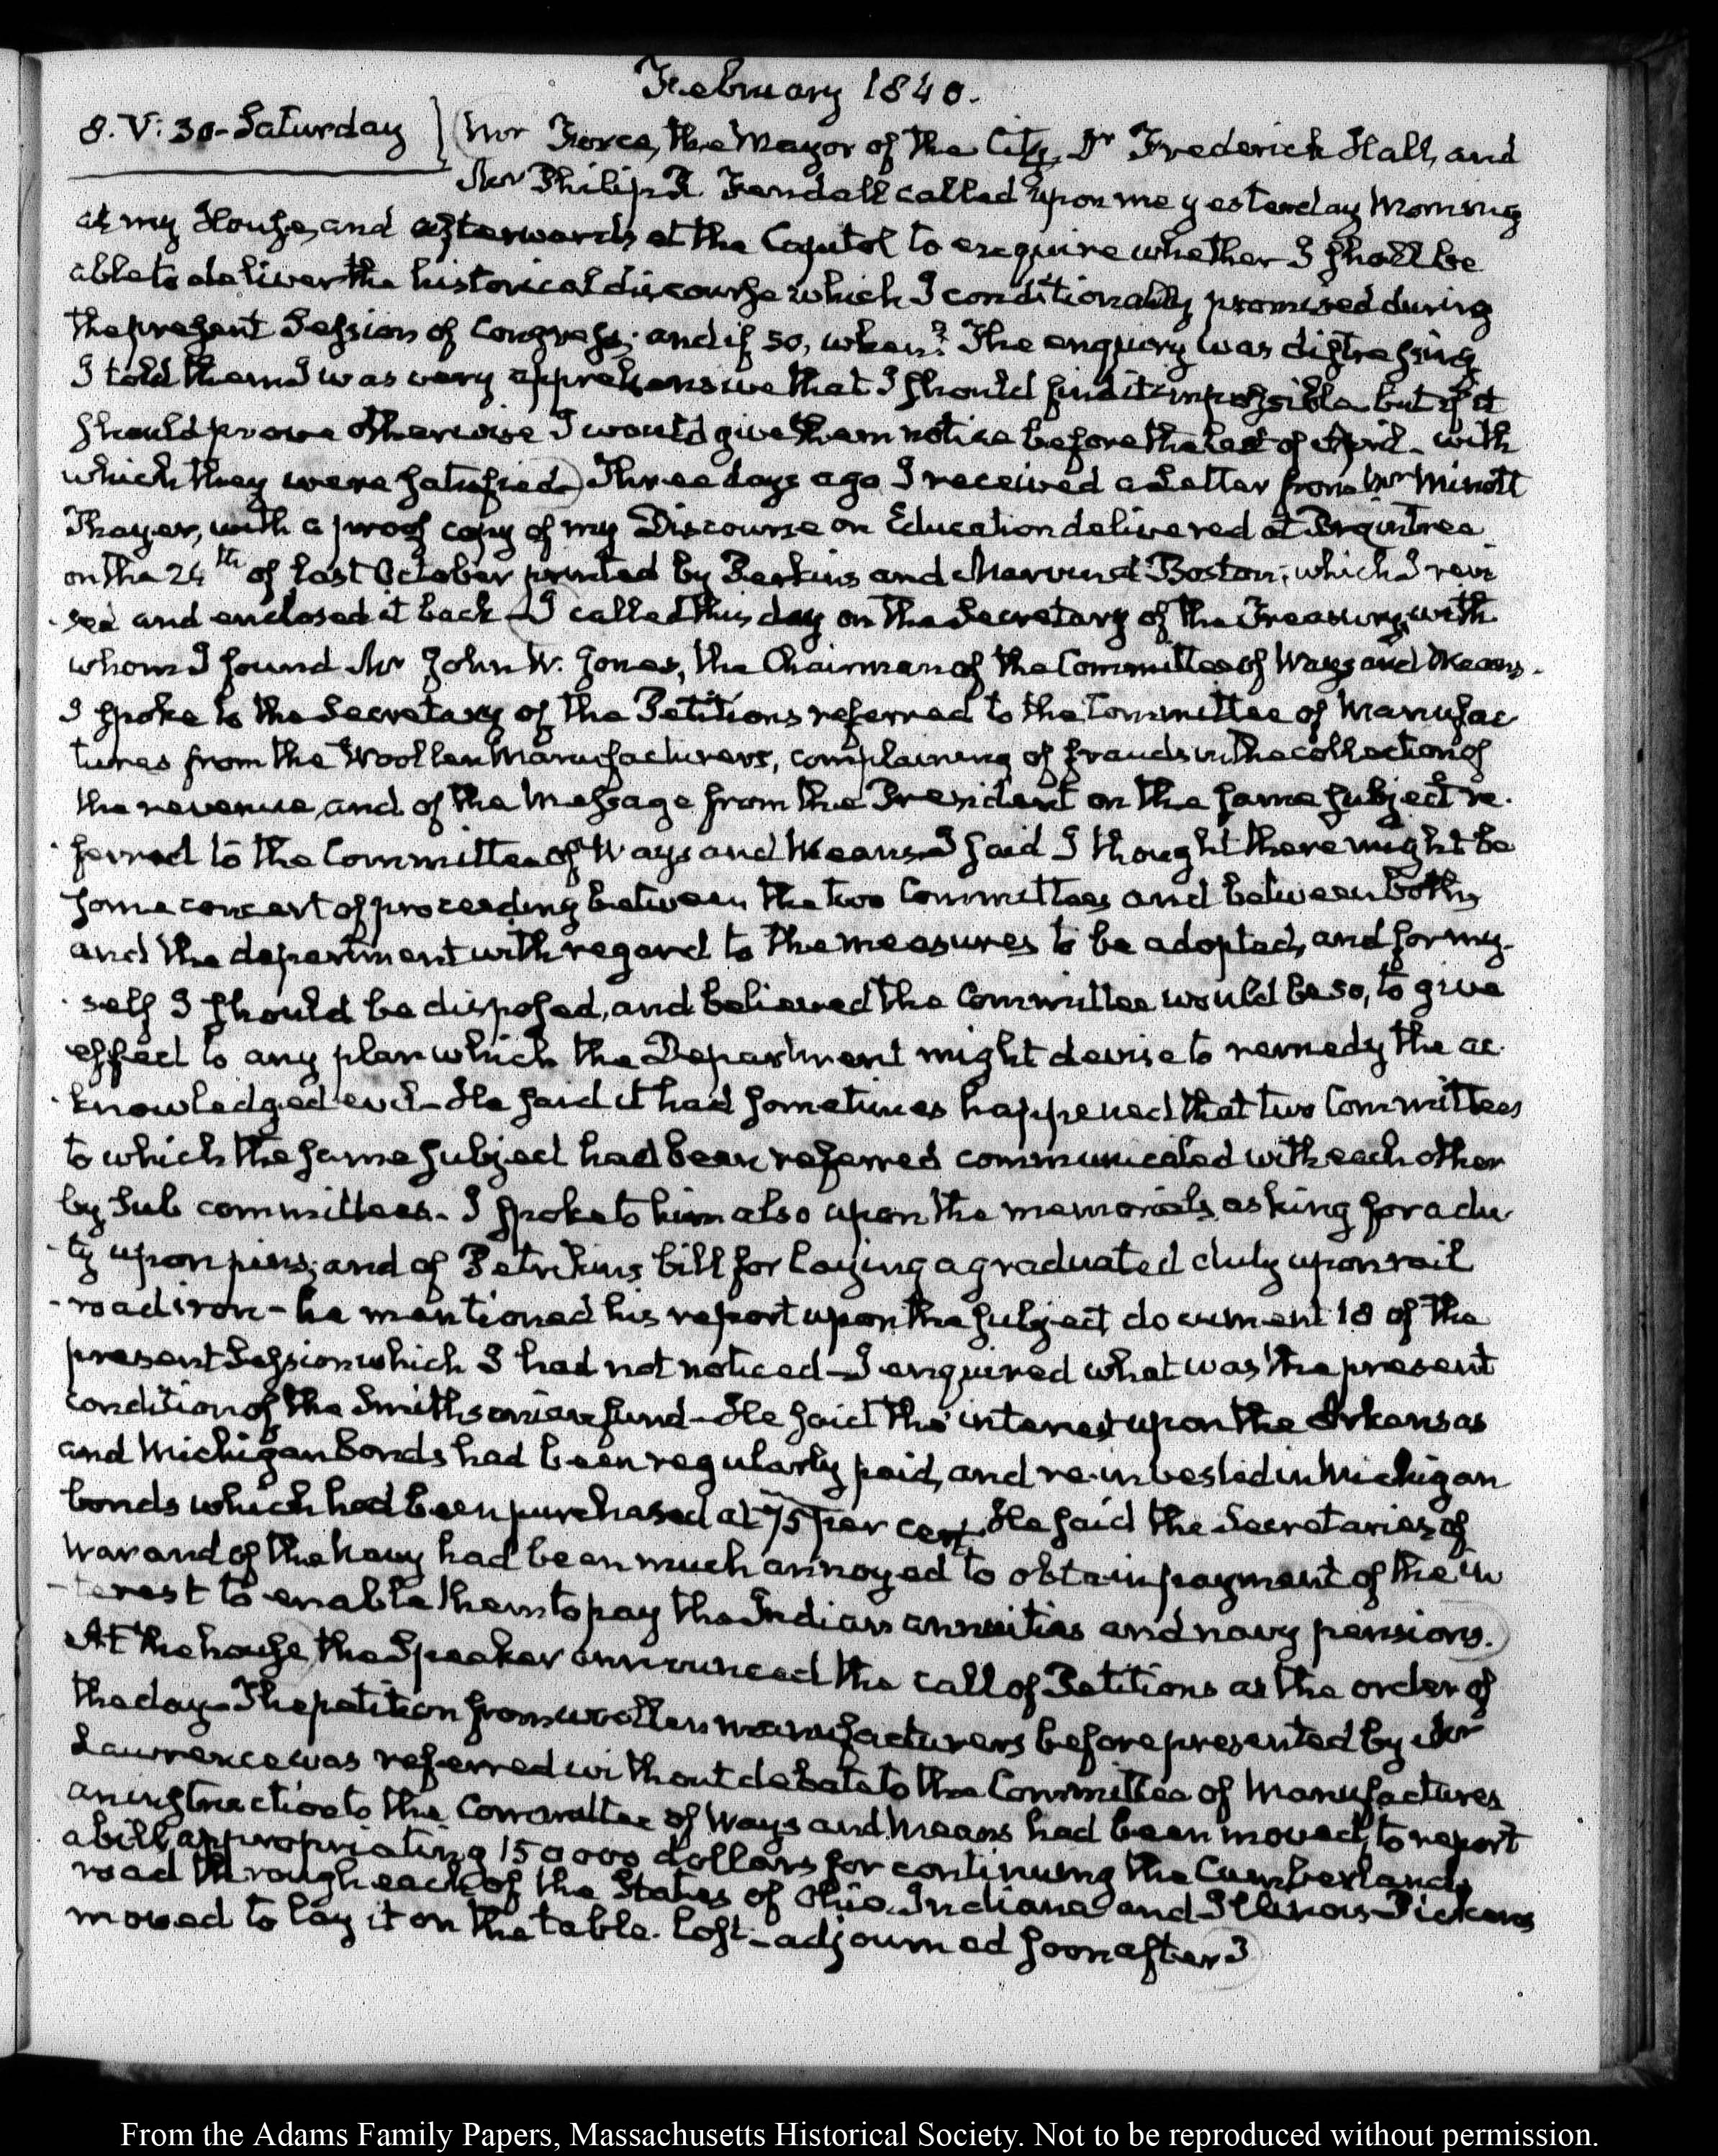 February 1840.
8. V: 30 - Saturday
Mr Force, the Mayor of the City, Dr Frederick Hall, and
Mr Philip R. Fendall called upon me yesterday Morning
at my House, and afterwards at the Capitol to enquire whether I shall be
able to deliver the historical discourse which I conditionally promised during
the present Session of Congress; and if so, when? The enquiry was distressing
I told them I was very apprehensive that I should find it impossible but if it
should prove otherwise I would give them notice before the last of April - with
which they were satisfied. Three days ago I received a Letter from Mr Minott
Thayer, with a proof copy of my Discourse on Education delivered at Braintree
on the 24th of last October printed by Perkins and Marvin at Boston; which I revi
-sed and enclosed it back - I called this day on the Secretary of the Treasury, with
whom I found Mr John W. Jones, the Chairman of the Committee of Ways and Means.
I spoke to the Secretary of the Petitions referred to the Committee of Manufac
tures from the Woollen Manufacturers, complaining of frauds in the collection of
the revenue, and of the Message from the President on the same subject re-
-ferred to the Committee of Ways and Means. I said I thought there might be
some concert of proceeding between the two Committees and between both,
and the department with regard to the measures to be adopted, and for my-
-self I should be disposed, and believed the Committee would be so, to give
effect to any plan which the Department might devise to remedy the ac-
-knowledged evil - He said it had sometimes happened that two Committees
to which the same subject had been referred communicated with each other
by Sub committees - I spoke to him also upon the memorials, asking for a du-
-ty upon pins; and of Petrikins bill for laying a graduated duty upon rail
-road iron - he mentioned his report upon the subject document 18 of the
present Session which I had not noticed - I enquired what was the present
condition of the Smithsonian fund - He said the interest upon the Arkansas
and Michigan Bonds had been regularly paid, and re-invested in Michigan
bonds which had been purchased at 75 per cent. He said the Secretaries of
War and of the Navy had been much annoyed to obtain payment of the in
-terest to enable them to pay the Indian annuities and navy pensions.
At the house, the Speaker announced the call of Petitions as the order of
the day - The petition from woollen manufacturers before presented by Mr
Lawrence was referred without debate to the Committee of Manufactures
an instruction to the Committee of Ways and Means had been moved, to report
a bill appropriating 150 000 dollars for continuing the Cumberland
road through each of the States of Ohio, Indiana and Illinois - Pickens
moved to lay it on the table. lost - adjourned soon after 3
From the Adams Family Papers, Massachusetts Historical Society. Not to be reproduced without permission.